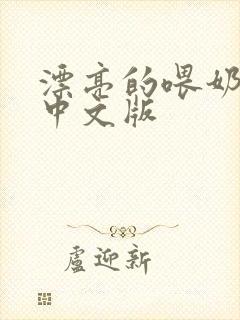 漂亮的喂奶
中文版
盧迎新